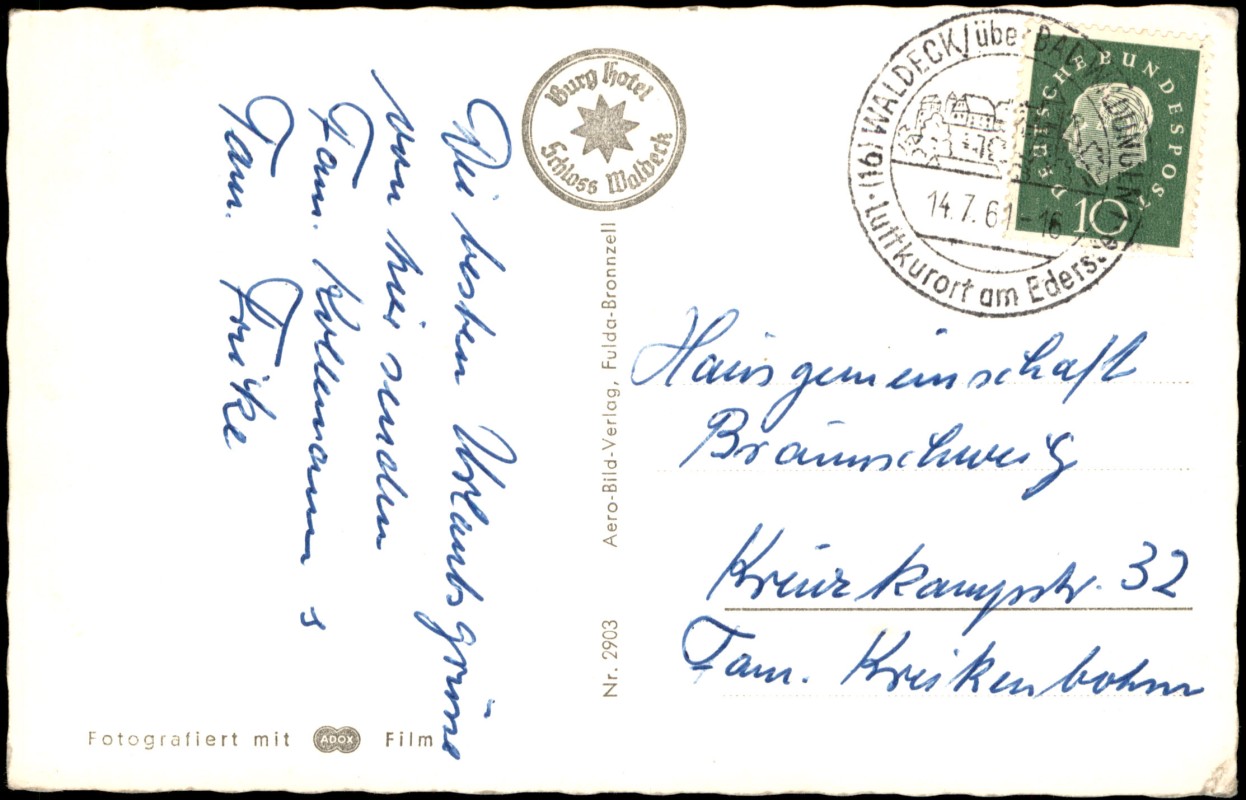 Die besten Urlaubsgrüße
von hier senden
Fam. Kollemann s
Fam. Fricke
Burg Hotel
Schloss Waldeck
Aero-Bild-Verlag, Fulda-Bronnzell
Nr. 2903
(16) WALDECK/über BAD WILDUNGEN 1
14.7.61-16
Luftkurort am Edersee
DEUTSCHE BUNDESPOST
10
Hausgemeinschaft
Braunschweig
Kreuzkampstr. 32
Fam. Kreikenbohm
Fotografiert mit ADOX Film